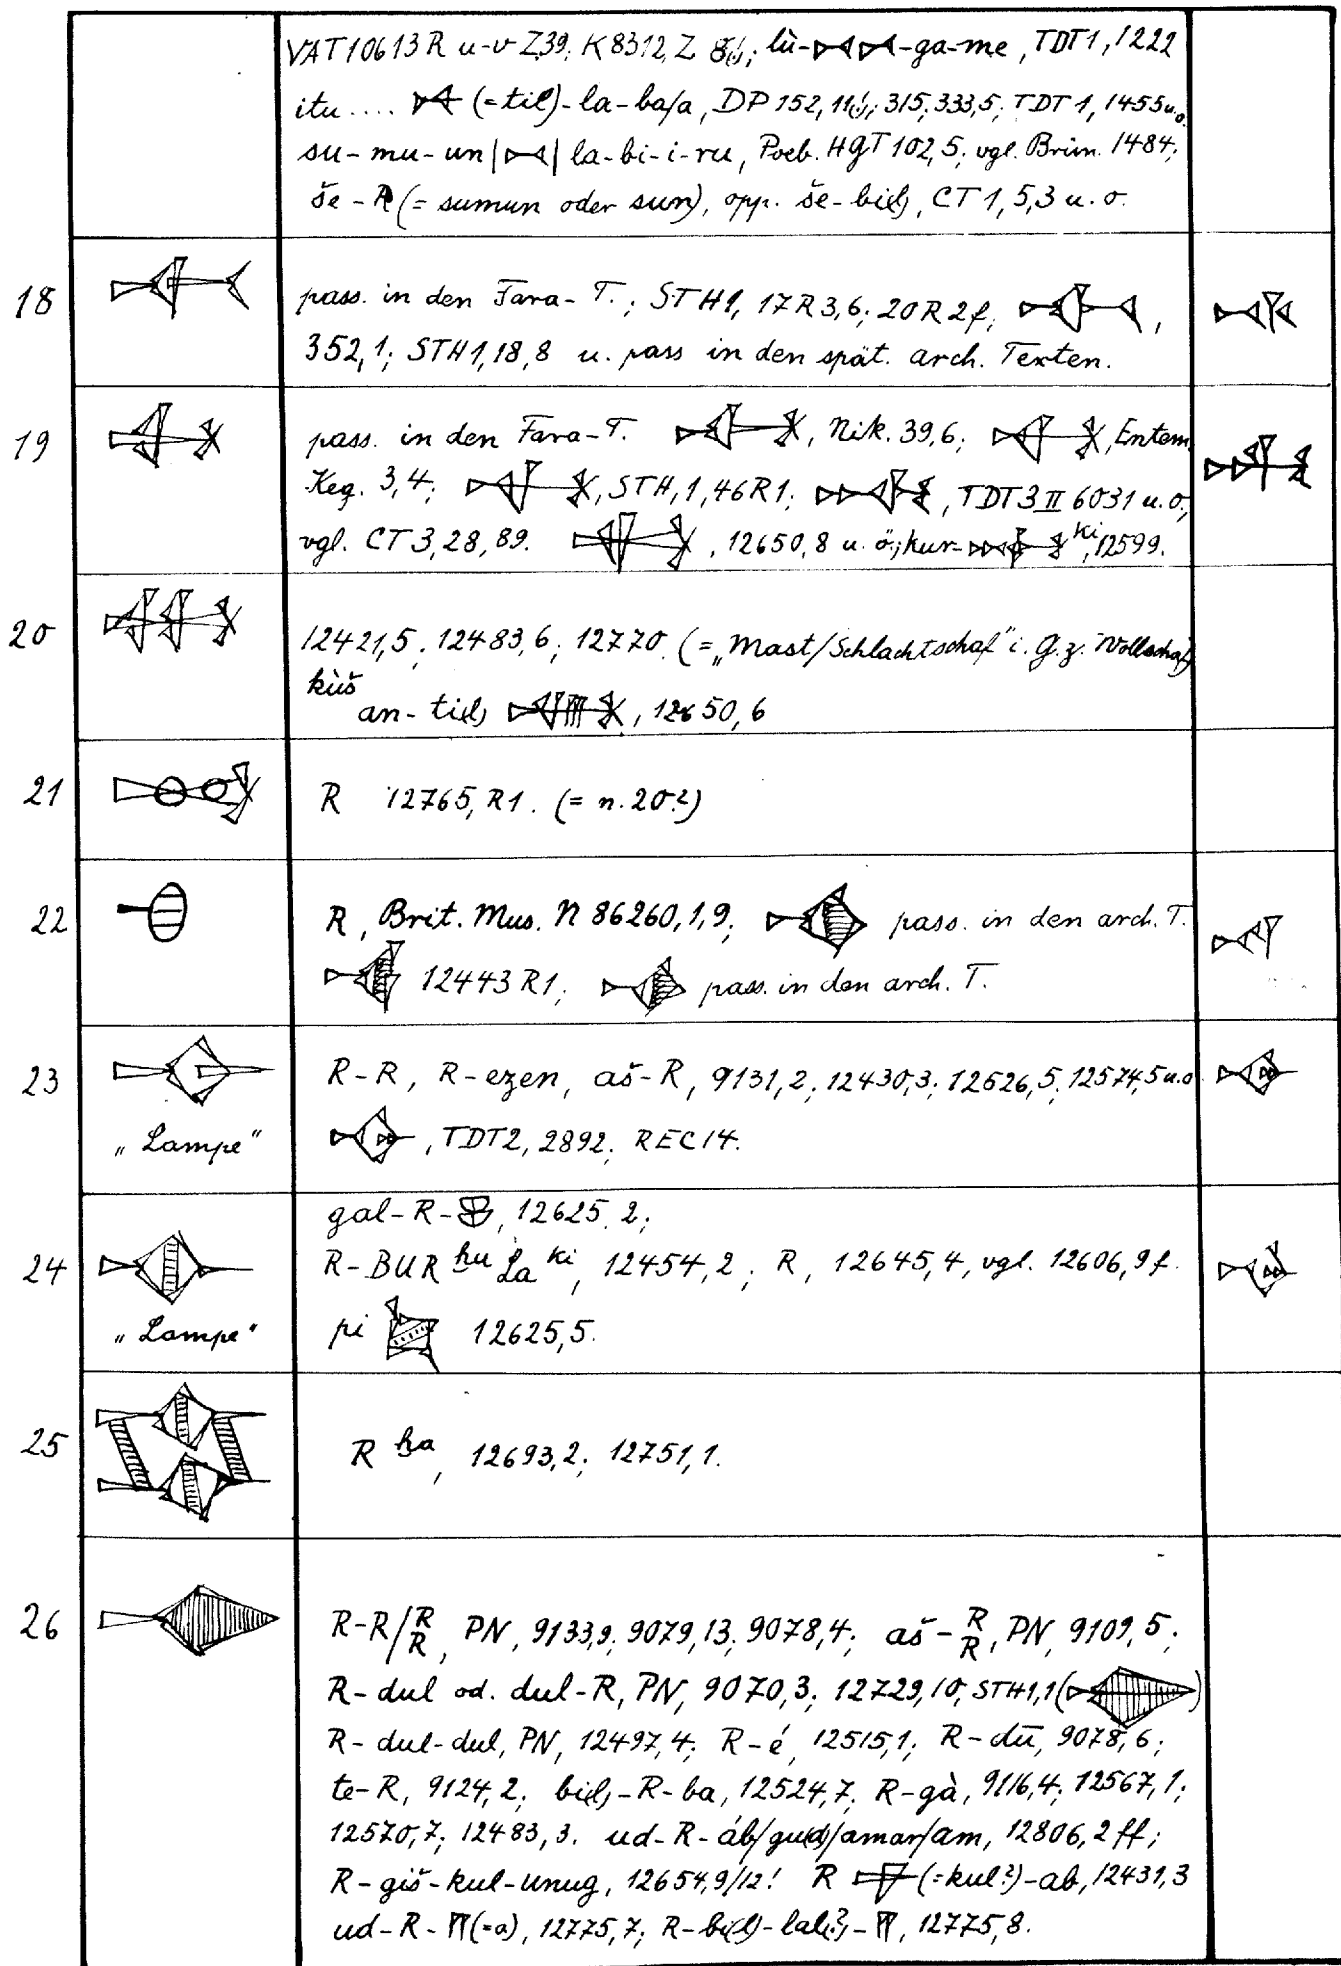 VAT 10613 R u-v Z 39; K 8312, Z 8; lù-𒁁𒁁-ga-me, TDT 1, 1222
itu .... 𒁁 (=til)-la-ba/a, DP 152, 11; 315; 333,5; TDT 1, 1455 u.o.
su-mu-un | 𒁁 | la-bi-i-ru, Poeb. HGT 102, 5; vgl. Brün. 1484;
še-R (= sumun oder sun), opp. še-bil, CT 1, 5, 3 u. o.
18 pass. in den Fara-T.; STH 1, 17 R 3,6; 20 R 2 f, ,
352,1; STH 1, 18, 8 u. pass in den spät. arch. Texten.
19 pass. in den Fara-T. , Nik. 39,6; , Entem.
Keg. 3,4; , STH, 1, 46 R 1; , TDT 3 II 6031 u. o.,
vgl. CT 3, 28, 89. , 12650, 8 u. ö.; kur- ki, 12599.
20 12421,5; 12483,6; 12770. (= „Mast/Schlachtschaf" i. G. z. Wollschaf)
kùš
an-til, , 12650, 6
21 R 12765, R 1. (= n. 20?)
22 R, Brit. Mus. N 86260, 1, 9; pass. in den arch. T.
12443 R 1; pass. in den arch. T.
23 R-R, R-ezen, aš-R, 9131,2; 12430,3; 12626,5; 12574,5 u. o
„Lampe" , TDT 2, 2892; REC 14.
gal-R- , 12625, 2;
24 R-BUR hu La ki, 12454, 2; R, 12645, 4, vgl. 12606, 9 f.
„Lampe" pi 12625,5.
25 R ha, 12693,2; 12751,1.
26 R-R/R R, PN, 9133,9; 9079,13; 9078,4; aš-R R, PN, 9109, 5;
R-dul od. dul-R, PN, 9070,3; 12729,10, STH 1,1 ( )
R-dul-dul, PN, 12497,4; R-é, 12515,1; R-dū, 9078,6;
te-R, 9124,2; bil-R-ba, 12524,7; R-gà, 9116,4; 12567,1;
12570,7; 12483,3. ud-R-áb/gu(d)/amar/am, 12806,2 ff;
R-giš-kul-unug, 12654,9/12! R (=kul?)-ab, 12431,3
ud-R-𒀀(=a), 12775,7; R-bi(l)-lal(?)-𒀀, 12775,8.